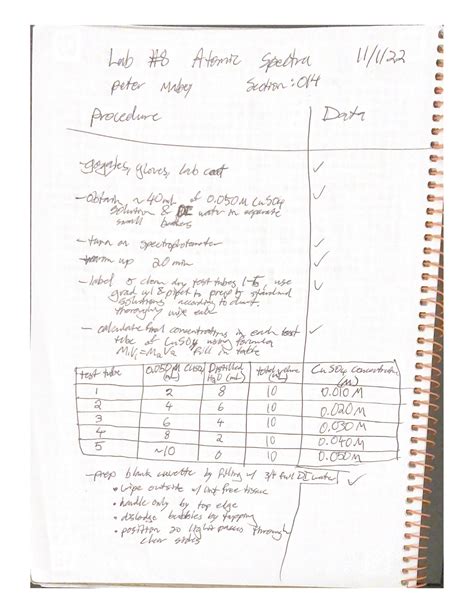 Lab #8 Atomic Spectra 11/1/22
Peter Mabey Section: 014
Procedure Data
-goggles, gloves, lab coat ✓
-obtain ~40 mL of 0.050 M CuSO4 ✓
solution & DI water in separate
small beakers
-turn on spectrophotometer ✓
-warm up 20 min ✓
-label 5 clean dry test tubes 1-5, use ✓
grad cyl & pipet to prep standard
solutions according to chart,
thoroughly mix each
- calculate final concentrations in each test ✓
tube of CuSO4 using formula
M1V1=M2V2 fill in table
test tube 0.050M CuSO4 (mL) Distilled H2O (mL) total volume (mL) CuSO4 concentration (M)
1 2 8 10 0.010 M
2 4 6 10 0.020 M
3 6 4 10 0.030 M
4 8 2 10 0.040 M
5 ~10 0 10 0.050 M
-prep blank cuvette by filling w/ 3/4 full DI water ✓
• wipe outside w/ lint free tissue
• handle only by top edge
• dislodge bubbles by tapping
• position so light passes through
clear sides